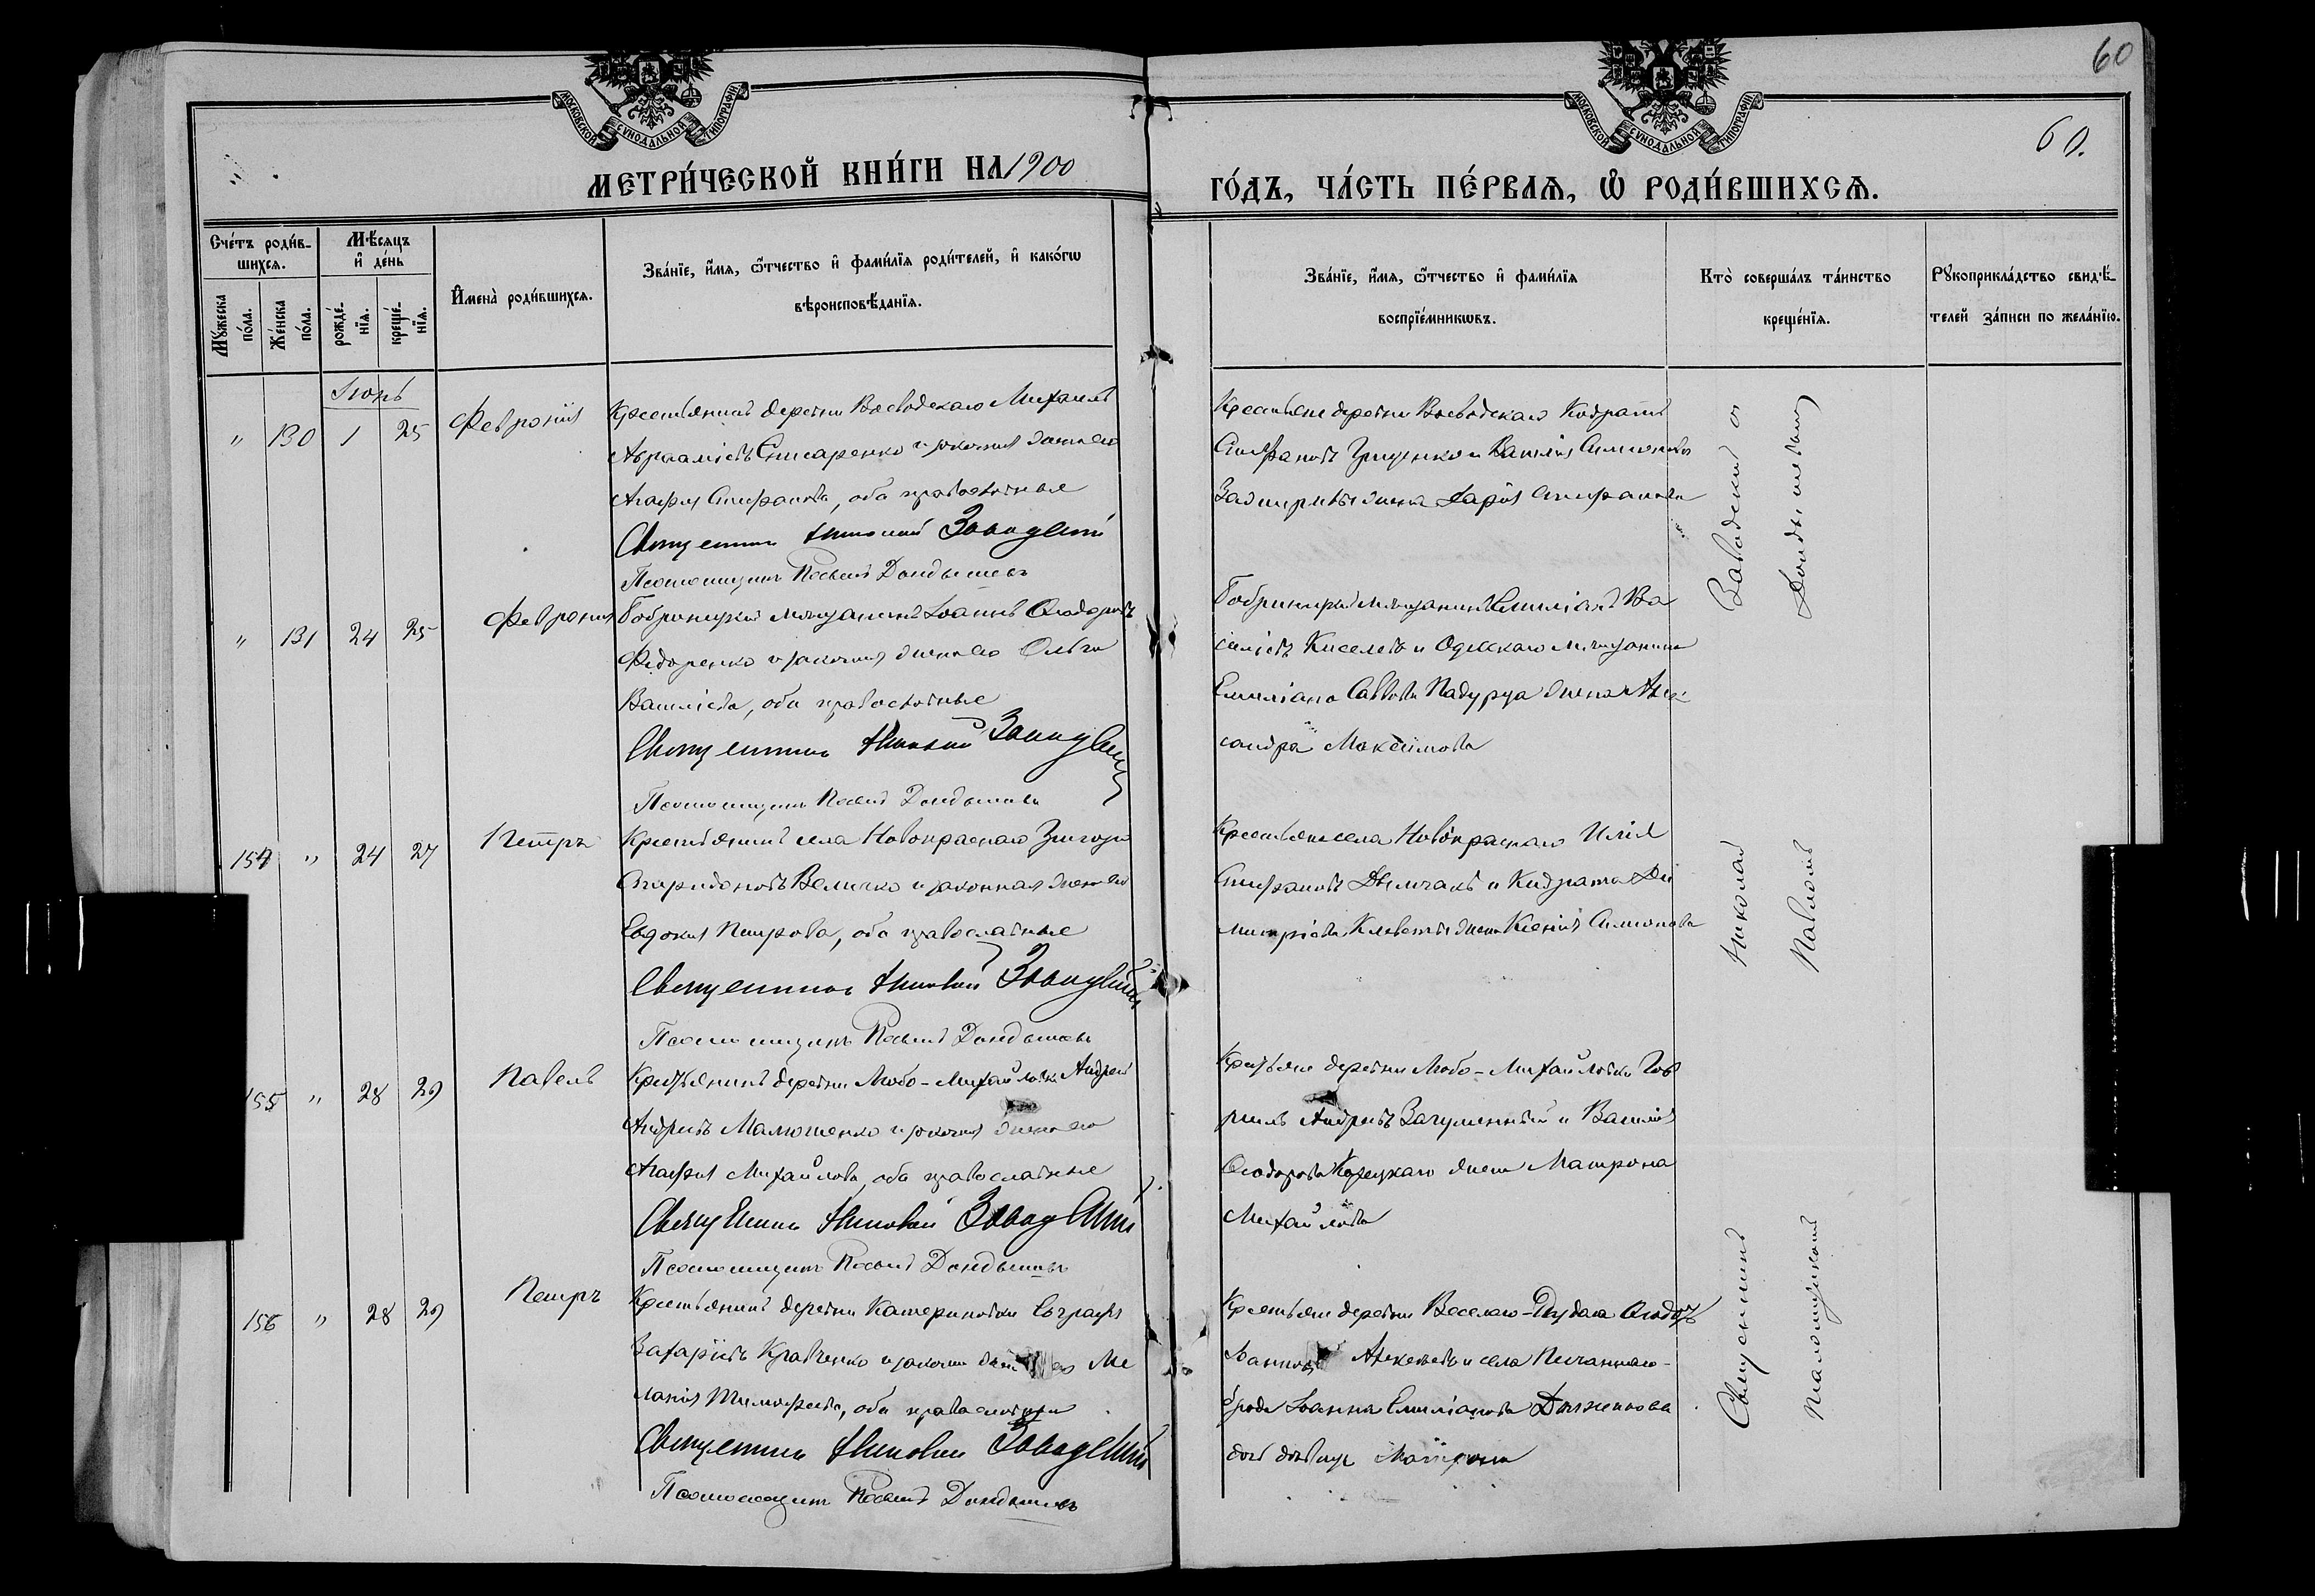 60
60.
МОСКОВСКОЙ СѴНОДАЛЬНОЙ ТИПОГРАФІИ
МОСКОВСКОЙ СѴНОДАЛЬНОЙ ТИПОГРАФІИ
МЕТРИ́ЧЕСКОЙ КНИ́ГИ НА 1900
ГО́ДЪ, ЧА́СТЬ ПЕ́РВАѦ, Ѡ҆ РОДИ́ВШИХСѦ.
Сче́тъ роди́в-
шихсѧ.
Мѣ́сѧцъ
и҆ де́нь
Мꙋ́жеска
по́ла.
Же́нска
по́ла.
рожде́-
нїѧ.
креще́-
нїѧ.
И҆мена̀ роди́вшихсѧ.
Зва́нїе, и҆́мѧ, ѻ҆́тчество и҆ фами́лїѧ роди́телей, и҆ како́гѡ
вѣроисповѣ́данїѧ.
Зва́нїе, и҆́мѧ, ѻ҆́тчество и҆ фами́лїѧ
воспрїе́мникѡвъ.
Кто̀ соверша́лъ та́инство
креще́нїѧ.
Рꙋкоприкла́дство свидѣ́-
телей за́писи по жела́нїю.
Іюнь
" 130 1 25 Февронія
Крестьянинъ деревни Воеводскаго Михаилъ
Аврааміевъ Снисаренко и законная жена его
Агафія Стефанова, оба православные
Священникъ Николай Заводскій
Псаломщикъ Павелъ Дондышевъ
Крестьяне деревни Воеводскаго Кодратъ
Стефановъ Грищенко и Василія Симеонова
жена Дарія Стефанова
" 131 24 25 Февронія
Бобринецкій мѣщанинъ Іоаннъ Ѳеодоровъ
Федоренко и законная жена его Ольга
Василіева, оба православные
Священникъ Николай Заводскій
Псаломщикъ Павелъ Дондышевъ
Бобринецкій мѣщанинъ Емиліанъ Ва
силіевъ Киселевъ и Одесскаго мѣщанина
Емиліана Саввова Падуруа жена Алек
сандра Максимова
154 " 24 27 Петръ
Крестьянинъ села Новокраснаго Григорій
Спиридоновъ Величко и законная жена его
Евдокія Петрова, оба православные
Священникъ Николай Заводскій
Псаломщикъ Павелъ Дондышевъ
Крестьяне села Новокраснаго Илія
Стефановъ и Кодрата Ди
митріева жена Ксенія Симеонова
155 " 28 29 Павелъ
Крестьянинъ деревни Любо-Михайловки Андрей
Андреевъ Малюшенко и законная жена его
Агафія Михайлова, оба православные
Священникъ Николай Заводскій
Псаломщикъ Павелъ Дондышевъ
Крестьяне деревни Любо-Михайловки Гав
риилъ Андреевъ Загуменный и Василія
Ѳеодорова Корецкаго жена Матрона
Михайлова
156 " 28 29 Петръ
Крестьянинъ деревни Катериновки Евграфъ
Захаріевъ Кравченко и законная жена его Ме
ланія Тимофеева, оба православные
Священникъ Николай Заводскій
Псаломщикъ Павелъ Дондышевъ
Крестьяне деревни Веселаго-Подола Ѳеодоръ
Іоанновъ Алексѣевъ и села Песчаннаго-
Брода Іоанна Емиліанова
дочь дѣвица
Священникъ Николай Заводскій съ
псаломщикомъ Павломъ Дондышевымъ